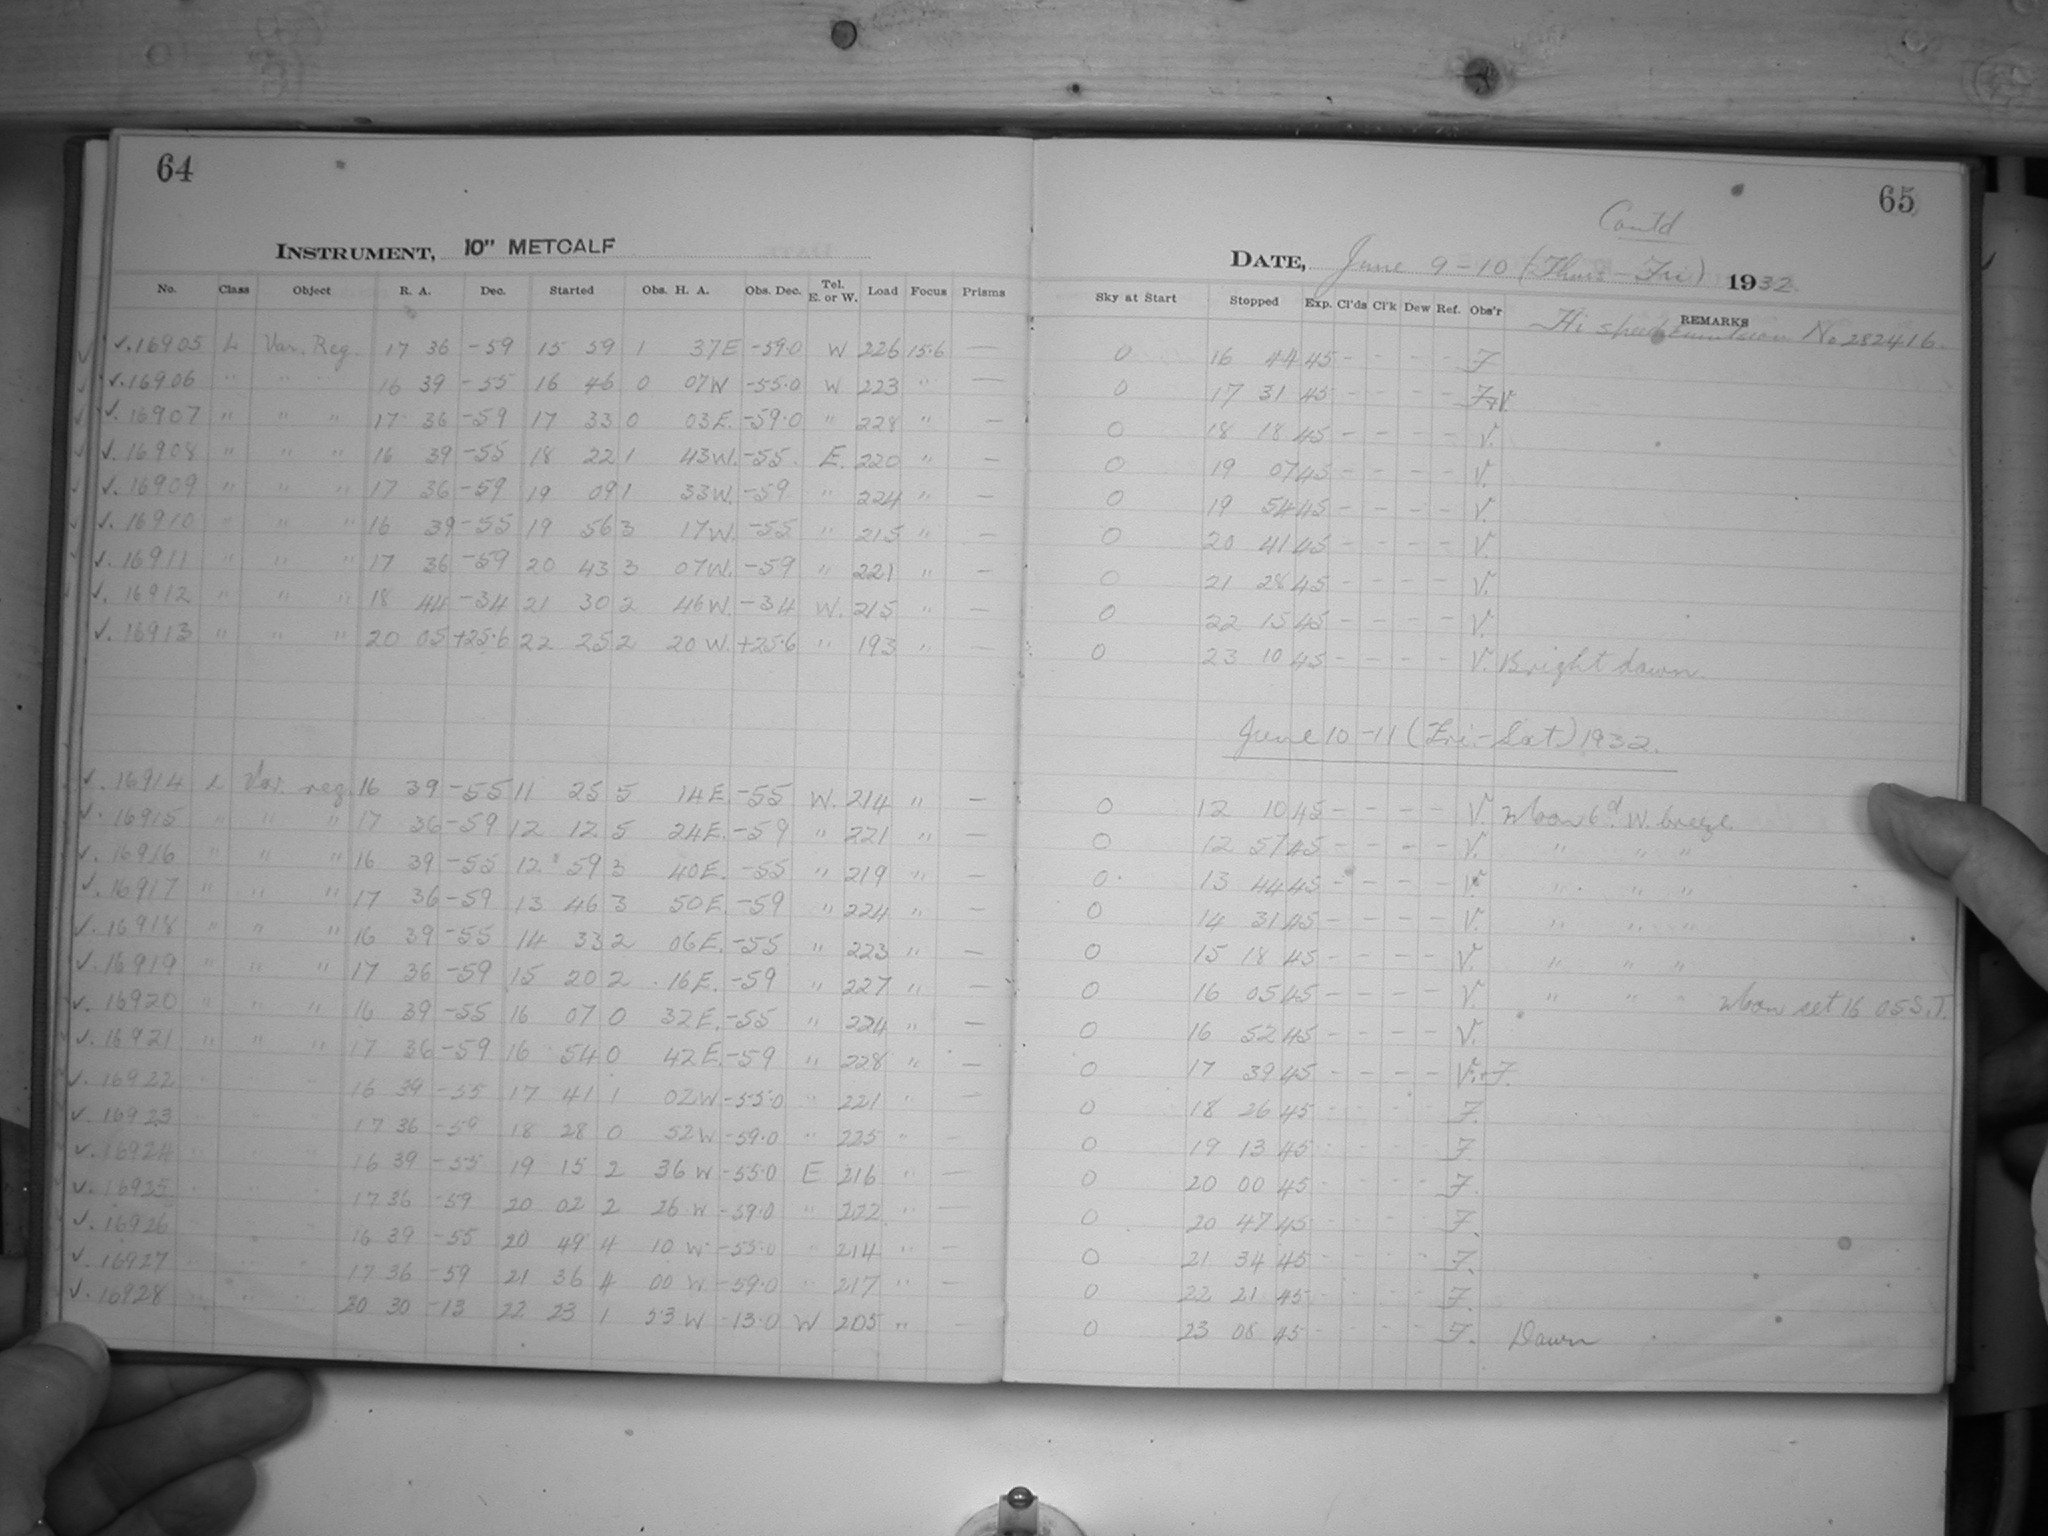 64
INSTRUMENT, 10" METCALF
No. Class Object R. A. Dec. Started Obs. H. A. Obs. Dec. Tel. E. or W. Load Focus Prisms
✓. 16905 L Var. Reg. 17 36 -59 15 59 1 37E -59.0 W 226 15.6 —
✓. 16906 " " 16 39 -55 16 46 0 07W -55.0 W 223 " —
✓. 16907 " " " 17 36 -59 17 33 0 03E. -59.0 " 228 " —
✓. 16908 " " " 16 39 -55 18 22 1 43W. -55. E. 220 " —
✓. 16909 " " " 17 36 -59 19 09 1 33W. -59 " 224 " —
✓. 16910 " " " 16 39 -55 19 56 3 17W. -55 " 215 " —
✓. 16911 " " " 17 36 -59 20 43 3 07W. -59 " 221 " —
✓. 16912 " " " 18 44 -34 21 30 2 46W. -34 W. 215 " —
✓. 16913 " " " 20 05 +25.6 22 25 2 20W. +25.6 " 193 " —
✓. 16914 L Var. reg. 16 39 -55 11 25 5 14E. -55 W. 214 " —
✓. 16915 " " " 17 36 -59 12 12 5 24E. -59 " 221 " —
✓. 16916 " " " 16 39 -55 12. 59 3 40E. -55 " 219 " —
✓. 16917 " " " 17 36 -59 13 46 3 50E. -59 " 224 " —
✓. 16918 " " " 16 39 -55 14 33 2 06E. -55 " 223 " —
✓. 16919 " " " 17 36 -59 15 20 2 16E. -59 " 227 " —
✓. 16920 " " " 16 39 -55 16 07 0 32E. -55 " 224 " —
✓. 16921 " " " 17 36 -59 16 54 0 42E. -59 " 228 " —
✓. 16922 " " " 16 39 -55 17 41 1 02W -55.0 " 221 " —
✓. 16923 " " " 17 36 -59 18 28 0 52W -59.0 " 225 " —
✓. 16924 " " " 16 39 -55 19 15 2 36W -55.0 E 216 " —
✓. 16925 " " " 17 36 -59 20 02 2 26W -59.0 " 222 " —
✓. 16926 " " " 16 39 -55 20 49 4 10W -55.0 " 214 " —
✓. 16927 " " " 17 36 -59 21 36 4 00W -59.0 " 217 " —
✓. 16928 " " " 20 30 -13 22 23 1 53W -13.0 W 205 " —
65
Contd
DATE, June 9-10 (Thurs-Fri) 1932.
Sky at Start Stopped Exp. Cl'ds Cl'k Dew Ref. Obs'r REMARKS
Hi speed Emulsion No 282416.
0 16 44 45 - - - - F
0 17 31 45 - - - - F+V.
0 18 18 45 - - - - V.
0 19 07 45 - - - - V.
0 19 54 45 - - - - V.
0 20 41 45 - - - - V.
0 21 28 45 - - - - V.
0 22 15 45 - - - - V.
0 23 10 45 - - - - V. Bright dawn.
June 10-11 (Fri.-Sat.) 1932.
0 12 10 45 - - - - V. Moon 6d. W. breeze.
0 12 57 45 - - - - V. " " "
0 13 44 45 - - - - V. " " "
0 14 31 45 - - - - V. " " "
0 15 18 45 - - - - V. " " "
0 16 05 45 - - - - V. " " " Moon set 16 05 S.T.
0 16 52 45 - - - - V.
0 17 39 45 - - - - V.+F.
0 18 26 45 - - - - F.
0 19 13 45 - - - - F
0 20 00 45 - - - - F.
0 20 47 45 - - - - F.
0 21 34 45 - - - - F.
0 22 21 45 - - - - F.
0 23 08 45 - - - - F. Dawn